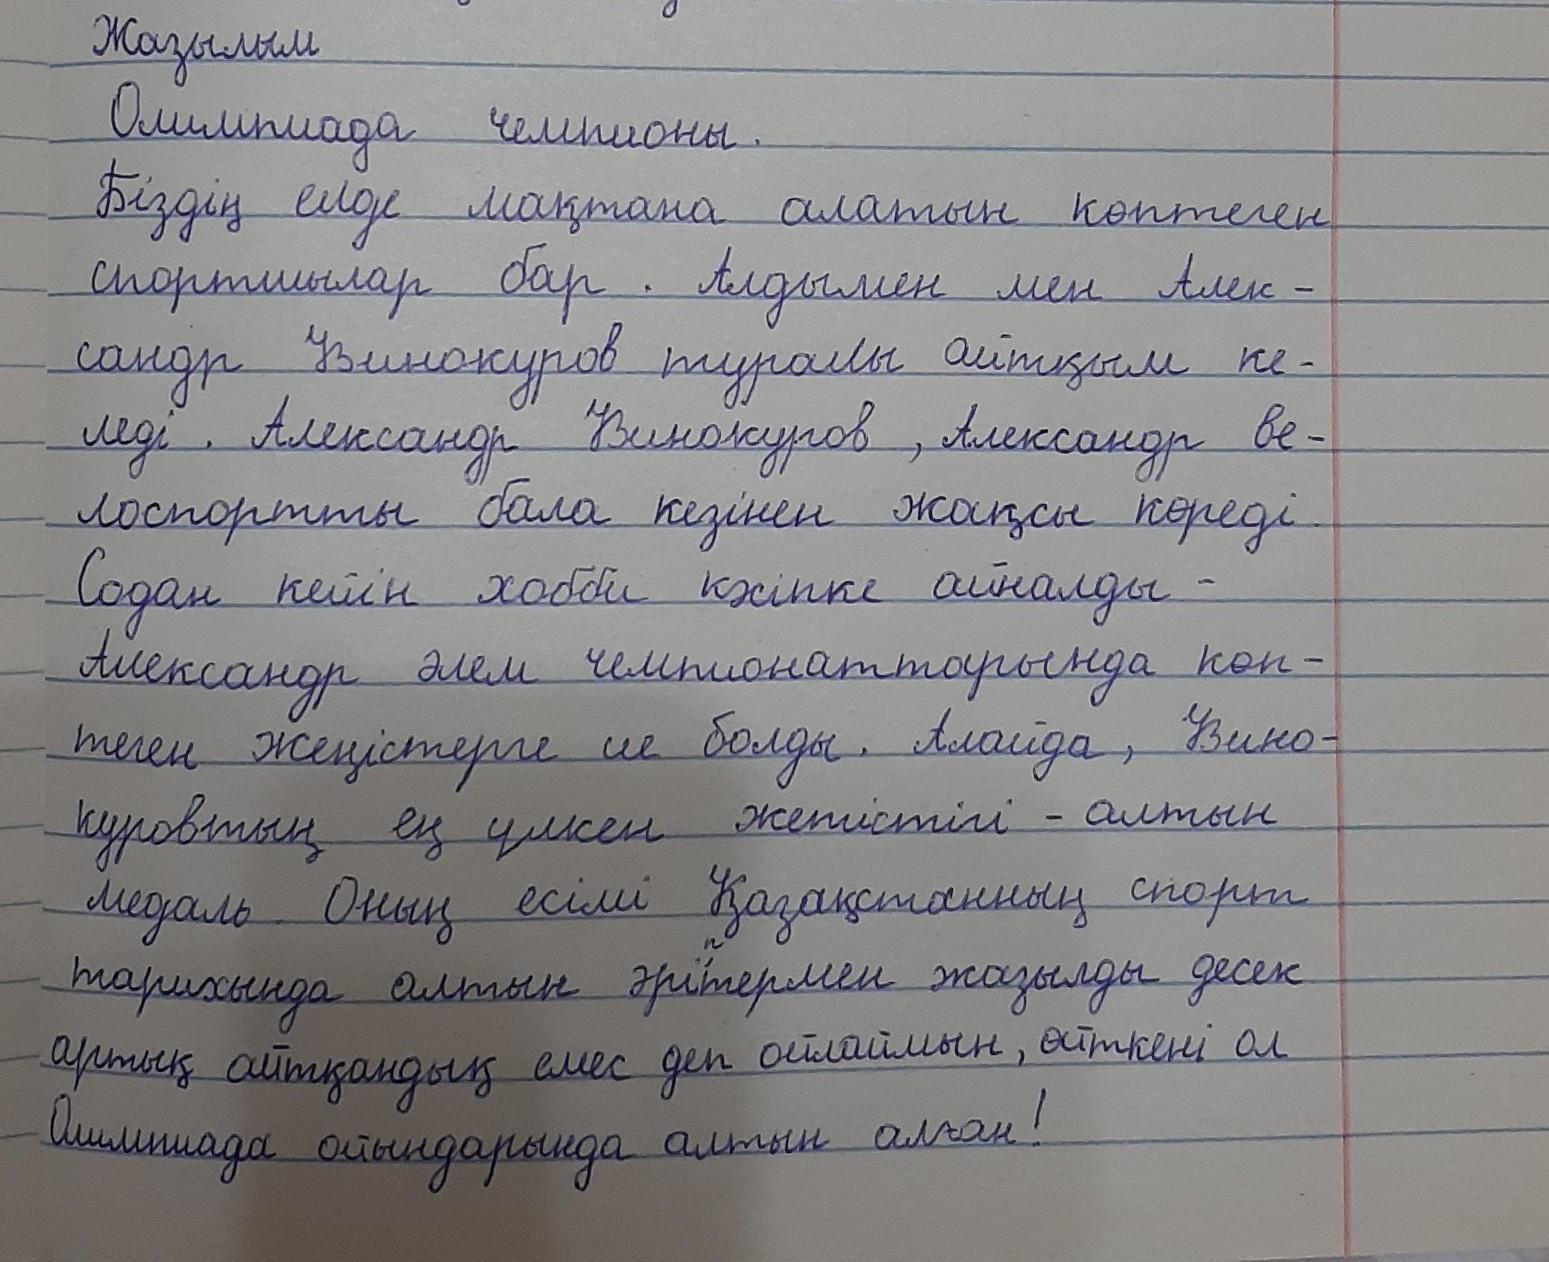 Жазылым
Олимпиада чемпионы.
Біздің елде мақтана алатын көптеген
спортшылар бар. Алдымен мен Алек-
сандр Винокуров туралы айтқым ке-
леді. Александр Винокуров, Александр ве-
лоспортты бала кезінен жақсы көреді
Содан кейін хобби кәсіпке айналды -
Александр әлем чемпионаттарында көп-
теген жеңістерге ие болды. Алайда, Вино-
куровтың ең үлкен жетістігі - алтын
медаль. Оның есімі Қазақстанның спорт
тарихында алтын әріптермен жазылды десек
артық айтқандық емес деп ойлаймын, өйткені ол
Олимпиада ойындарында алтын алған!